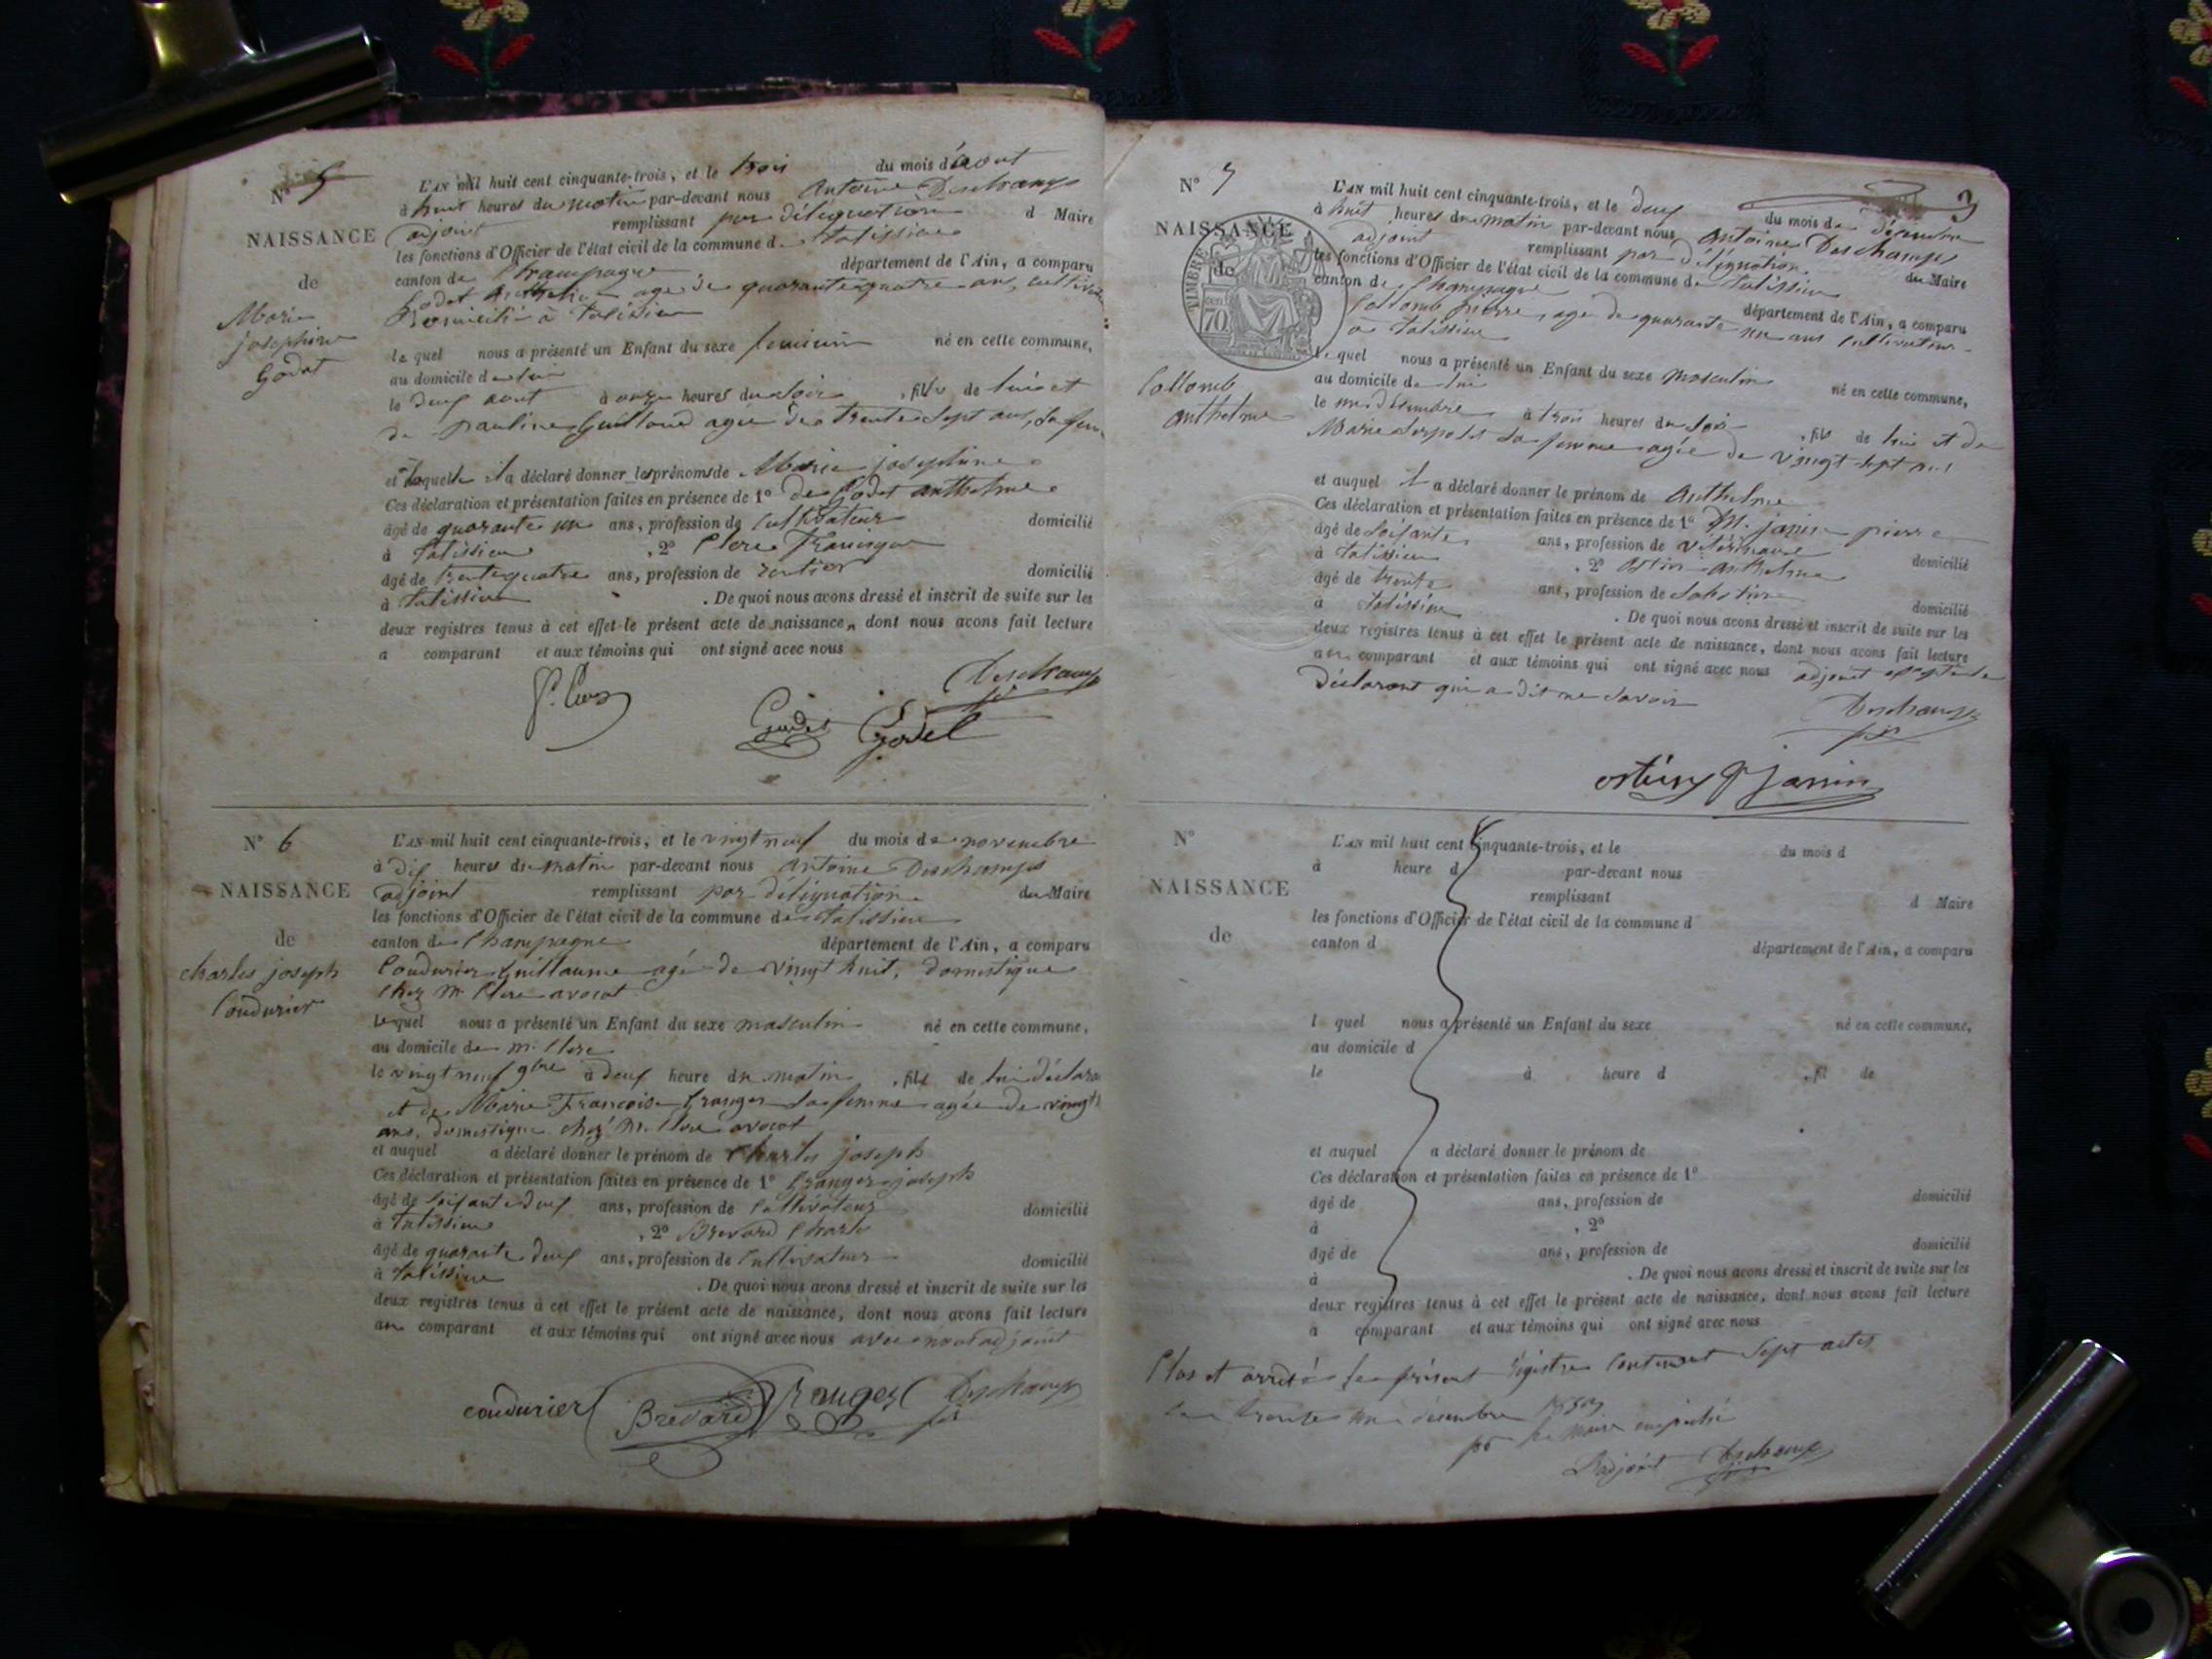 N° 5
NAISSANCE
de
Marie
josephine
Godet
L'AN mil huit cent cinquante-trois, et le trois du mois d'août
à huit heures du matin par-devant nous Antoine Deschamps
adjoint remplissant par délégation d Maire
les fonctions d'Officier de l'état civil de la commune de talissieu
canton de Champagne département de l'Ain, a comparu
Godet Anthelme agé de quarante quatre ans, cultivateur
Domicilié à talissieu
le quel nous a présenté un Enfant du sexe feminin né en cette commune,
au domicile de lui
le deux aout à onze heures du soir, fille de lui et
de pauline Guilland agée de trente sept ans, sa fem
et laquelle il a déclaré donner les prénoms de Marie josephine
Ces déclaration et présentation faites en présence de 1° de Godet anthelme
âgé de quarante un ans, profession de Cultivateur domicilié
à talissieu, 2° Clerc François
âgé de trente quatre ans, profession de rentier domicilié
à talissieu. De quoi nous avons dressé et inscrit de suite sur les
deux registres tenus à cet effet le présent acte de naissance, dont nous avons fait lecture
a comparant et aux témoins qui ont signé avec nous
Deschamps
Godet Godet
N° 6
NAISSANCE
de
charles joseph
Coudurier
L'AN mil huit cent cinquante-trois, et le vingt neuf du mois de novembre
à dix heures du matin par-devant nous Antoine Deschamps
adjoint remplissant par délégation du Maire
les fonctions d'Officier de l'état civil de la commune de talissieu
canton de Champagne département de l'Ain, a comparu
Coudurier Guillaume agé de vingt huit, domestique
chez Mr Clerc avocat
le quel nous a présenté un Enfant du sexe masculin né en cette commune,
au domicile de m. Clerc
le vingt neuf 9bre à deux heure du matin, fils de lui déclara
et de Marie Françoise Granger sa femme agée de vingt
ans, domestique chez M. Clerc avocat
et auquel a déclaré donner le prénom de Charles joseph
Ces déclaration et présentation faites en présence de 1° Granger joseph
âgé de soixante deux ans, profession de Cultivateur domicilié
à talissieu, 2° Brevard Charles
âgé de quarante deux ans, profession de Cultivateur domicilié
à talissieu. De quoi nous avons dressé et inscrit de suite sur les
deux registres tenus à cet effet le présent acte de naissance, dont nous avons fait lecture
au comparant et aux témoins qui ont signé avec nous avec nous adjoint
coudurier Brevard Granger Deschamps
3
N° 7
NAISSANCE
de
TIMBRE
70
Collomb
anthelme
L'AN mil huit cent cinquante-trois, et le deux du mois de décembre
à huit heures du matin par-devant nous Antoine Deschamps
adjoint remplissant par délégation du Maire
les fonctions d'Officier de l'état civil de la commune de talissieu
canton de Champagne département de l'Ain, a comparu
Collomb pierre, age de quarante un ans cultivateur
à talissieu
le quel nous a présenté un Enfant du sexe masculin né en cette commune,
au domicile de lui
le un décembre à trois heures du soir, fils de lui et de
Marie Serpolet sa femme agée de vingt sept ans
et auquel il a déclaré donner le prénom de Anthelme
Ces déclaration et présentation faites en présence de 1° M. janin pierre
âgé de soixante ans, profession de vétérinaire domicilié
à talissieu, 2° Ostin anthelme
âgé de trente ans, profession de Sabotier domicilié
à talissieu. De quoi nous avons dressé et inscrit de suite sur les
deux registres tenus à cet effet le présent acte de naissance, dont nous avons fait lecture
au comparant et aux témoins qui ont signé avec nous adjoint excepté le
déclarant qui a dit ne savoir
Deschamps
P Janin
N°
NAISSANCE
de
L'AN mil huit cent cinquante-trois, et le du mois d
à heure d par-devant nous
remplissant d Maire
les fonctions d'Officier de l'état civil de la commune d
canton d département de l'Ain, a comparu
l quel nous a présenté un Enfant du sexe né en cette commune,
au domicile d
le à heure d, fil de
et auquel a déclaré donner le prénom de
Ces déclaration et présentation faites en présence de 1°
âgé de ans, profession de domicilié
à, 2°
âgé de ans, profession de domicilié
à. De quoi nous avons dressé et inscrit de suite sur les
deux registres tenus à cet effet le présent acte de naissance, dont nous avons fait lecture
a comparant et aux témoins qui ont signé avec nous
Clos et arrêté le présent registre contenant sept actes
le trente un décembre 1853
pr le Maire empêché
L'adjoint Deschamps